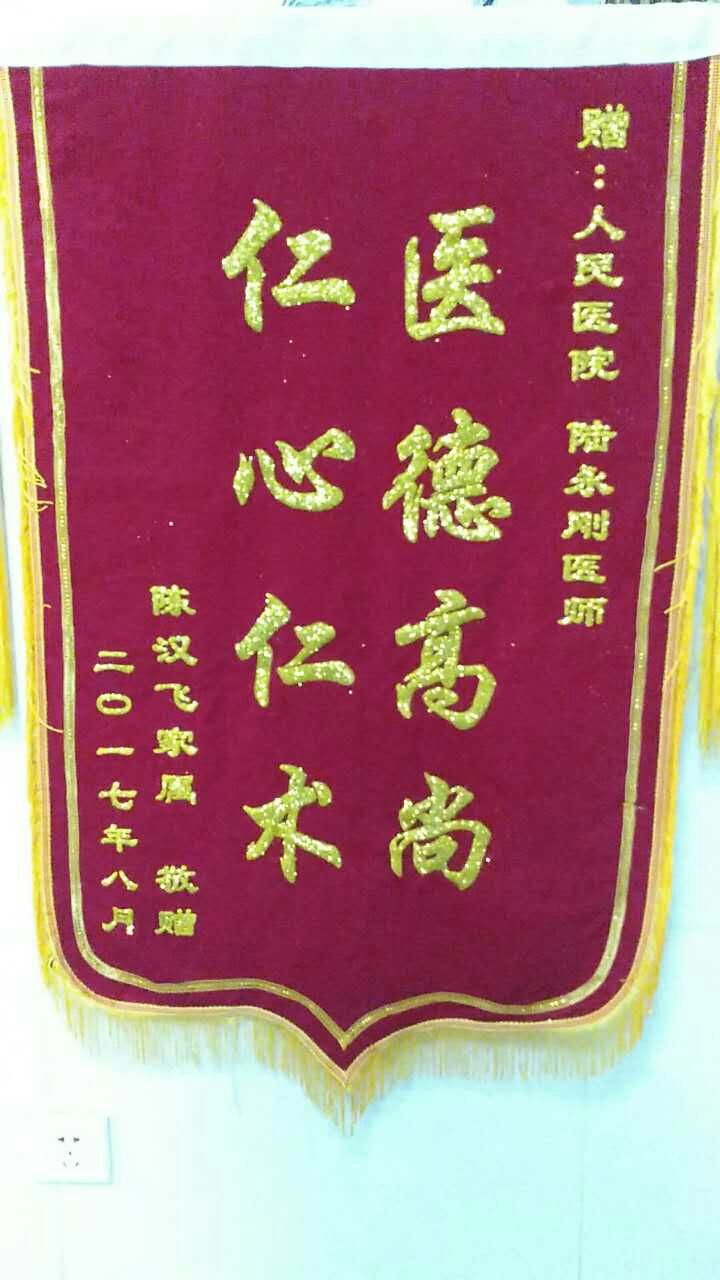 赠：人民医院 陆永刚医师
医德高尚
仁心仁术
陈汉飞家属 敬赠
二〇一七年八月